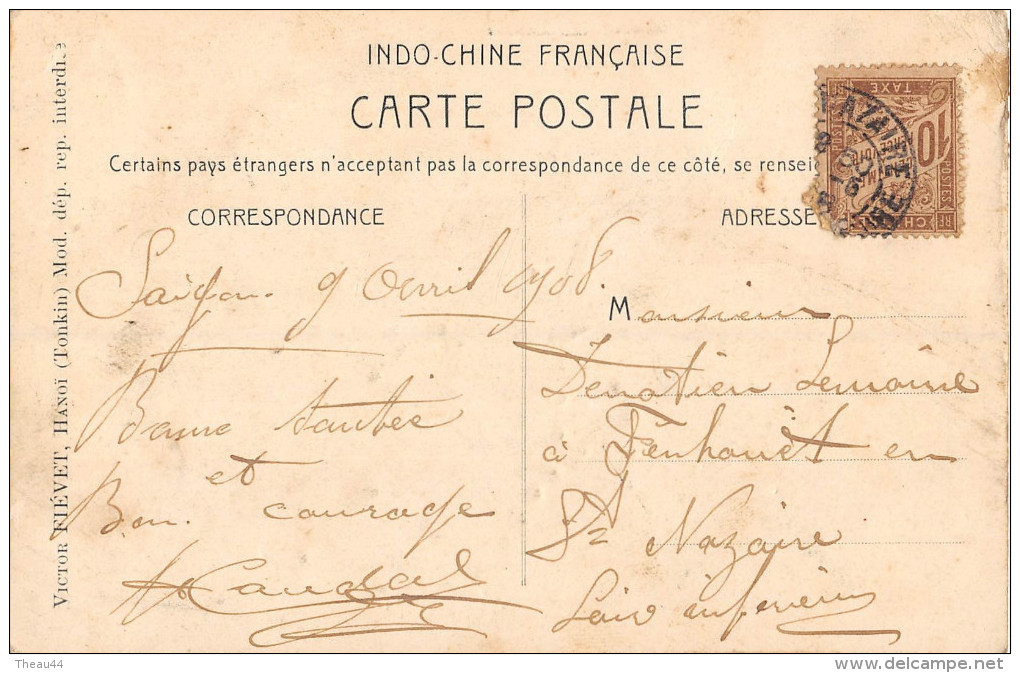 INDO-CHINE FRANÇAISE
CARTE POSTALE
Certains pays étrangers n'acceptant pas la correspondance de ce côté, se rensei
CORRESPONDANCE
ADRESSE
VICTOR FIÉVET, HANOÏ (Tonkin) Mod. dép. rep. interdite
10
TAXE
POSTES
Saïgon 9 Avril 1908.
Bonne Santée
et
Bon. courage
Monsieur
Donatien Lemoine
à Penhouët en
St Nazaire
Loire inférieure
Theau44
www.delcampe.net